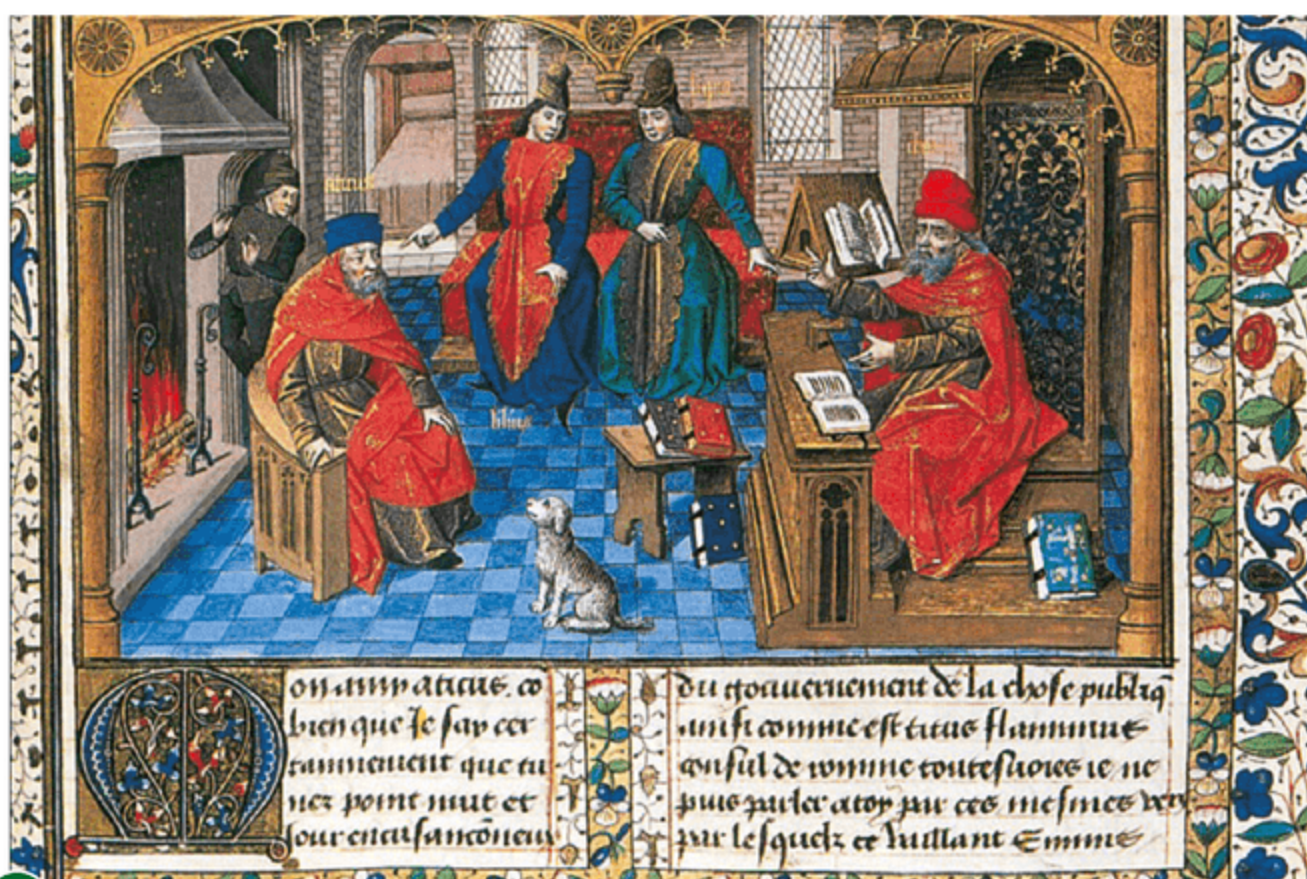 Mon amy aticus. co
bien que Je say cer
tainnement que tu
nez point nuit et
Jour
du gouuernement de la chose publiq
ainsi comme est titus flaminius
consul de romme toutesuoies ie ne
puis parler atoy par ces mesmes vers
par lesquelz ce vaillant Ennius